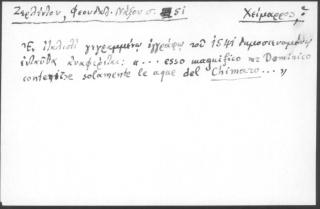 Ζερλέντου, Φεουδαλ. Νάξου σ. 51 Χείμαρρος, ὁ
Ἐν ἰταλιστὶ γεγραμμένῳ ἐγγράφῳ τοῦ 1541 δημοσιευομένῳ
ἐνταῦθα ἀναφέρεται: «... esso magnifico mr Dominico
contentise solamente le aque del Chimaro ...»